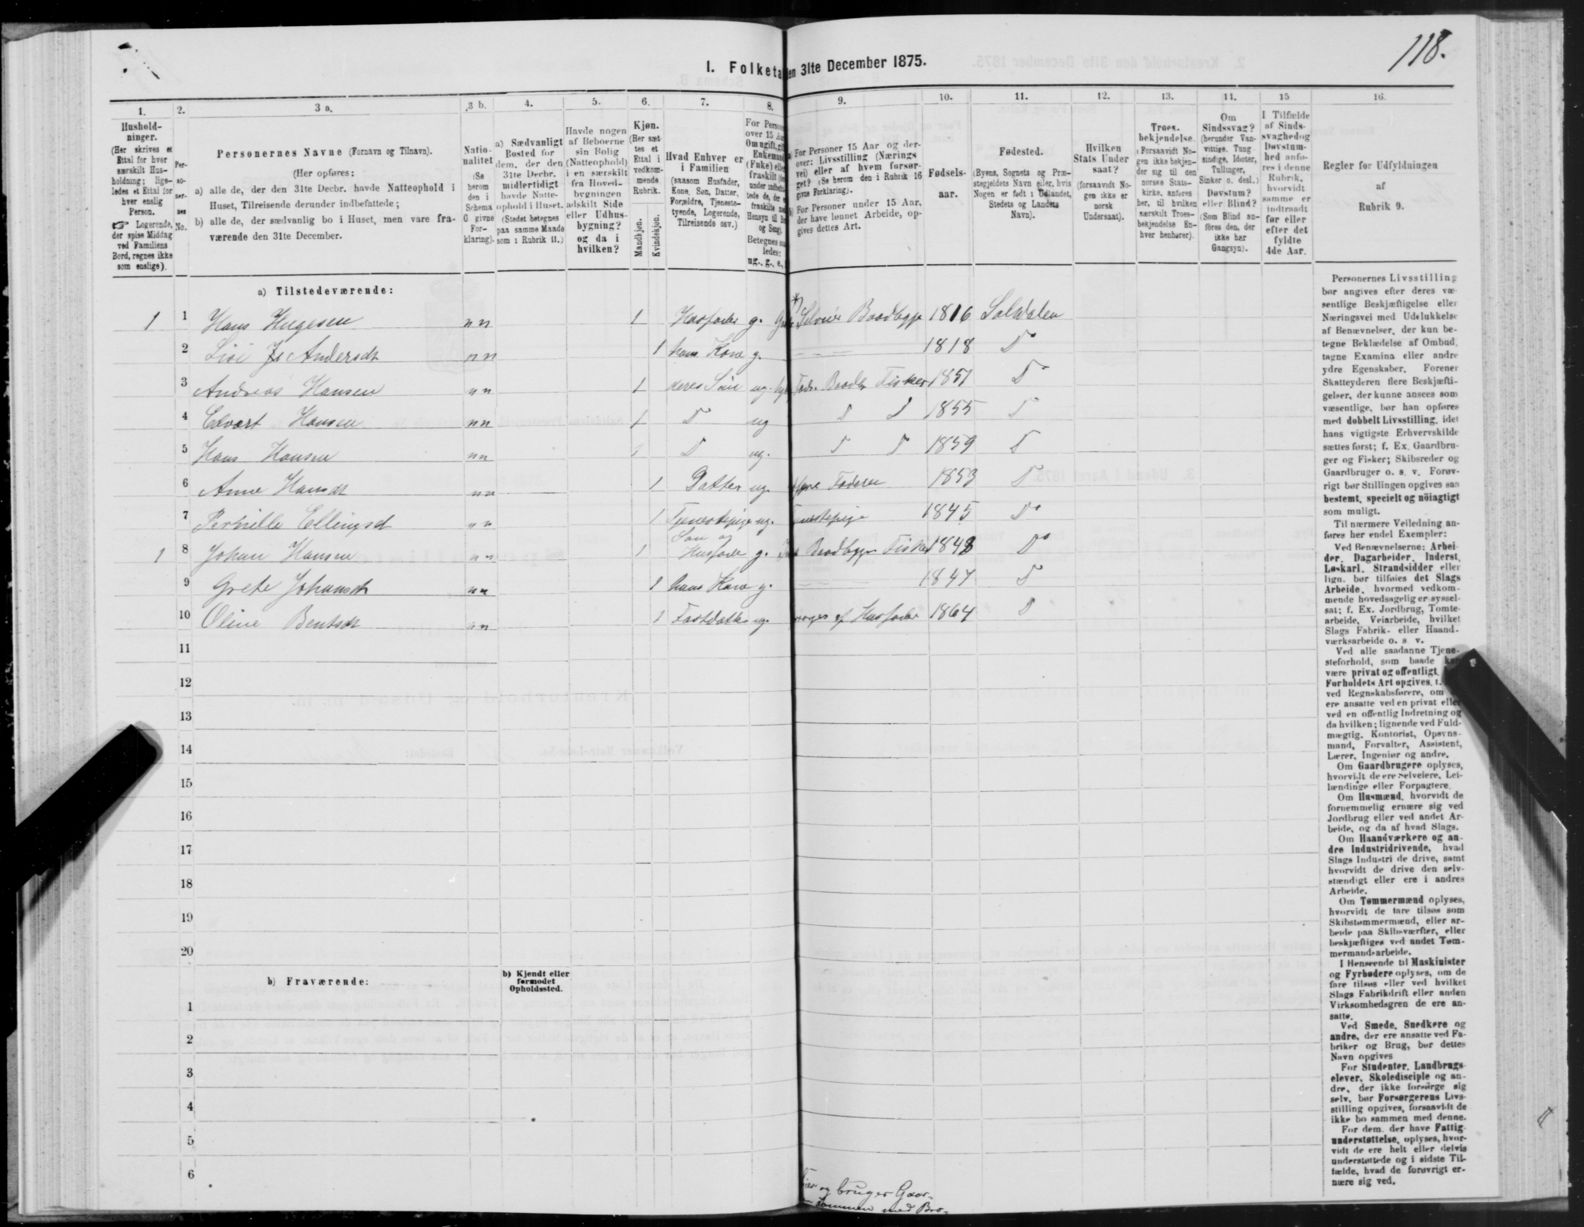 118.
I. Folketa en 31te December 1875.
1. 2. 3 a. 3 b. 4. 5. 6. 7. 8. 9. 10. 11. 12. 13. 14. 15 16.
Hushold-
ninger.
(Her skrives et
Ettal for hver
særskilt Hus-
holdning; lige-
ledes et Ettal for
hver enslig
Person.
☞ Logerende,
der spise Middag
ved Familiens
Bord, regnes ikke
som enslige).
Per-
so-
ner-
nes
No.
Personernes Navne (Fornavn og Tilnavn).
(Her opføres:
a) alle de, der den 31te Decbr. havde Natteophold i
Huset, Tilreisende derunder indbefattede;
b) alle de, der sædvanlig bo i Huset, men vare fra-
værende den 31te December.
Natio-
nalitet
(Se
herom
den i
Schema
G givne
For-
klaring).
a) Sædvanligt
Bosted for
dem, der den
31te Decbr.
midlertidigt
havde Natte-
ophold i Huset.
(Stedet betegnes
paa samme Maade
som i Rubrik 11.)
Havde nogen
af Beboerne
sin Bolig
(Natteophold)
i en særskilt
fra Hoved-
bygningen
adskilt Side
eller Udhus-
bygning?
og da i
hvilken?
Kjøn.
(Her sæt-
tes et
Ettal i
vedkom-
mende
Rubrik.
Mandkjøn.
Kvindekjøn.
Hvad Enhver er
i Familien
(saasom Husfader,
Kone, Søn, Datter,
Forældre, Tjeneste-
tyende, Logerende,
Tilreisende osv.)
For Person
over 15 Aa
Om ugift, gi
Enkeman
(Enke) elle
fraskilt
Betegnes s
ledes:
ug., g., e.,
For Personer 15 Aar og der-
over: Livsstilling (Nærings
vei) eller af hvem forsør-
get? (Se herom den i Rubrik 16
givne Forklaring).
For Personer under 15 Aar,
der have lønnet Arbeide, op-
gives dettes Art.
Fødsels-
aar.
Fødested.
(Byens, Sognets og Præ-
stegjeldets Navn eller, hvis
Nogen er født i Udlandet,
Stedets og Landets
Navn).
Hvilken
Stats Under
saat?
(forsaavidt No-
gen ikke er
norsk
Undersaat).
Troes-
bekjendelse.
(Forsaavidt No-
gen ikke bekjen-
der sig til den
norske Stats-
kirke, anføres
her, til hvilken
særskilt Troes-
bekjendelse En-
hver henhører).
Om
Sindssvag?
(herunder Van-
vittige, Tung
sindige, Idioter,
Tullinger,
Sinker o. desl.)
Døvstum?
eller Blind?
(Som Blind an-
føres den, der
ikke har
Gangsyn).
I Tilfælde
af Sinds-
svaghed og
Døvstum-
hed anfø-
res i denne
Rubrik,
hvorvidt
samme er
indtraadt
før eller
efter det
fyldte
4de Aar.
Regler for Udfyldningen
af
Rubrik 9.
a) Tilstedeværende:
1 1 Hans Hagesen nn 1 Husfader g. Selveier Boadbygg 1816 Saltdalen
2 Lise Js Andersdt nn 1 hans Kone g. 1818 D
3 Andreas Hansen nn 1 deres Søn ug. Boadb. Fisker 1851 D
4 Edvart Hansen nn 1 D ug D D 1855 D
5 Hans Hansen nn 1 D ug. D D 1859 D
6 Anne Hansdt nn 1 Datter ug. Faderen 1853 D
7 Pernille Ellingsd nn 1 Tjenestepige ug. 1845 D
1 8 Johan Hansen nn 1 Søn og Husfader g. Boadbygger Fisker 1848 D
9 Grete Johansdt nn 1 hans Kone g. 1847 D
10 Oline Bentsdt nn 1 Fostdatter ug. af Husfader 1864 D
11
12
13
14
15
16
17
18
19
20
b) Fraværende:
b) Kjendt eller
formodet
Opholdssted.
1
2
3
4
5
6
og bruger Gaar-
sammen med Bro-
Personernes Livsstilling
bør angives efter deres væ-
sentlige Beskjæftigelse eller
Næringsvei med Udelukkelse
af Benævnelser, der kun be-
tegne Beklædelse af Ombud,
tagne Examina eller andre
ydre Egenskaber. Forener
Skatteyderen flere Beskjæfti-
gelser, der kunne ansees som
væsentlige, bør han opføres
med dobbelt Livsstilling, idet
hans vigtigste Erhvervskilde
sættes først; f. Ex. Gaardbru-
ger og Fisker; Skibsreder og
Gaardbruger o. s. v. Forøv-
rigt bør Stillingen opgives saa
bestemt, specielt og nøiagtigt
som muligt.
Til nærmere Veiledning an-
føres her endel Exempler:
Ved Benævnelserne: Arbei-
der, Dagarbeider, Inderst,
Løskarl, Strandsidder eller
lign. bør tilføies det Slags
Arbeide, hvormed vedkom-
mende hovedsagelig er syssel-
sat; f. Ex. Jordbrug, Tomte-
arbeide, Veiarbeide, hvilket
Slags Fabrik- eller Haand-
værksarbeide o. s. v.
Ved alle saadanne Tjene-
steforhold, som baade k
være privat og offentligt,
Forholdets Art opgives, t.
ved Regnskabsførere, om
ere ansatte ved en privat elle
ved en offentlig Indretning og
da hvilken; lignende ved Fuld-
mægtig, Kontorist, Opsyns-
mand, Forvalter, Assistent,
Lærer, Ingeniør og andre.
Om Gaardbrugere oplyses,
hvorvidt de ere Selveiere, Lei-
lændinge eller Forpagtere.
Om Husmænd, hvorvidt de
fornemmelig ernære sig ved
Jordbrug eller ved andet Ar-
beide, og da af hvad Slags.
Om Haandværkere og an-
dre Industridrivende, hvad
Slags Industri de drive, samt
hvorvidt de drive den selv-
stændigt eller ere i andres
Arbeide.
Om Tømmermænd oplyses,
hvorvidt de fare tilsøs som
Skibstømmermænd, eller ar-
beide paa Skibsværfter, eller
beskjæftiges ved andet Tøm-
mermandsarbeide.
I Henseende til Maskinister
og Fyrbødere oplyses, om de
fare tilsøs eller ved hvilket
Slags Fabrikdrift eller anden
Virksomhedsgren de ere an-
satte.
Ved Smede, Snedkere og
andre, der ere ansatte ved Fa-
briker og Brug, bør dettes
Navn opgives
For Studenter, Landbrugs-
elever, Skoledisciple og an-
dre, der ikke forsørge sig
selv, bør Forsørgerens Livs-
stilling opgives, forsaavidt de
ikke bo sammen med denne.
For dem, der have Fattig-
understøttelse, oplyses, hvor-
vidt de ere helt eller delvis
understøttede og i sidste Til-
fælde, hvad de forøvrigt er-
nære sig ved.